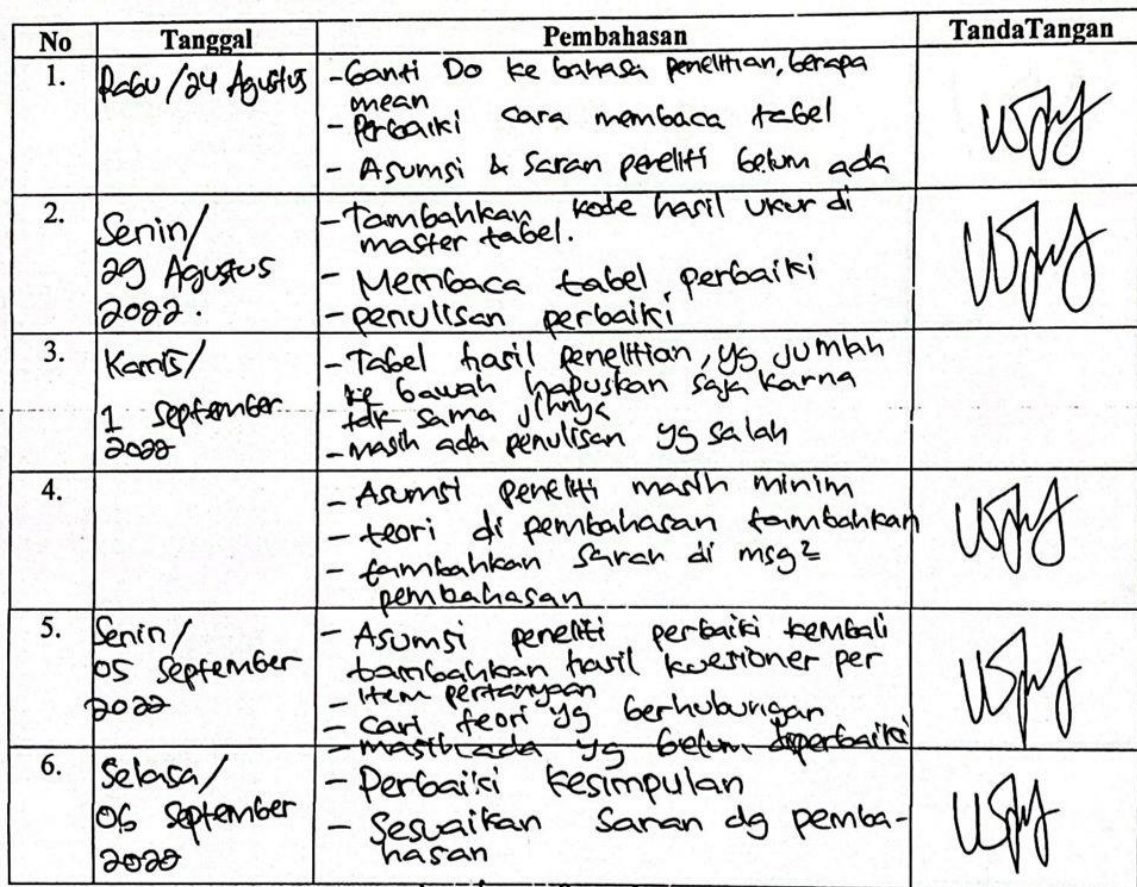 No Tanggal Pembahasan TandaTangan
1. Rabu/24 Agustus
- Ganti Do ke bahasa penelitian, berapa
mean
- Perbaiki cara membaca tabel
- Asumsi & Saran peneliti belum ada
2. Senin/
29 Agustus
2022.
- Tambahkan kode hasil ukur di
master tabel.
- Membaca tabel perbaiki
- penulisan perbaiki
3. Kamis/
1 September
2022
- Tabel hasil penelitian, yg jumlah
ke bawah hapuskan saja karna
tdk sama jlhnya
- masih ada penulisan yg salah
4.
- Asumsi peneliti masih minim
- teori di pembahasan tambahkan
- tambahkan saran di msg2
pembahasan
5. Senin/
05 September
2022
- Asumsi peneliti perbaiki kembali
tambahkan hasil kuesioner per
- item pertanyaan
- cari teori yg berhubungan
- masih ada yg belum diperbaiki
6. Selasa/
06 September
2022
- Perbaiki kesimpulan
- Sesuaikan Saran dg pemba-
hasan